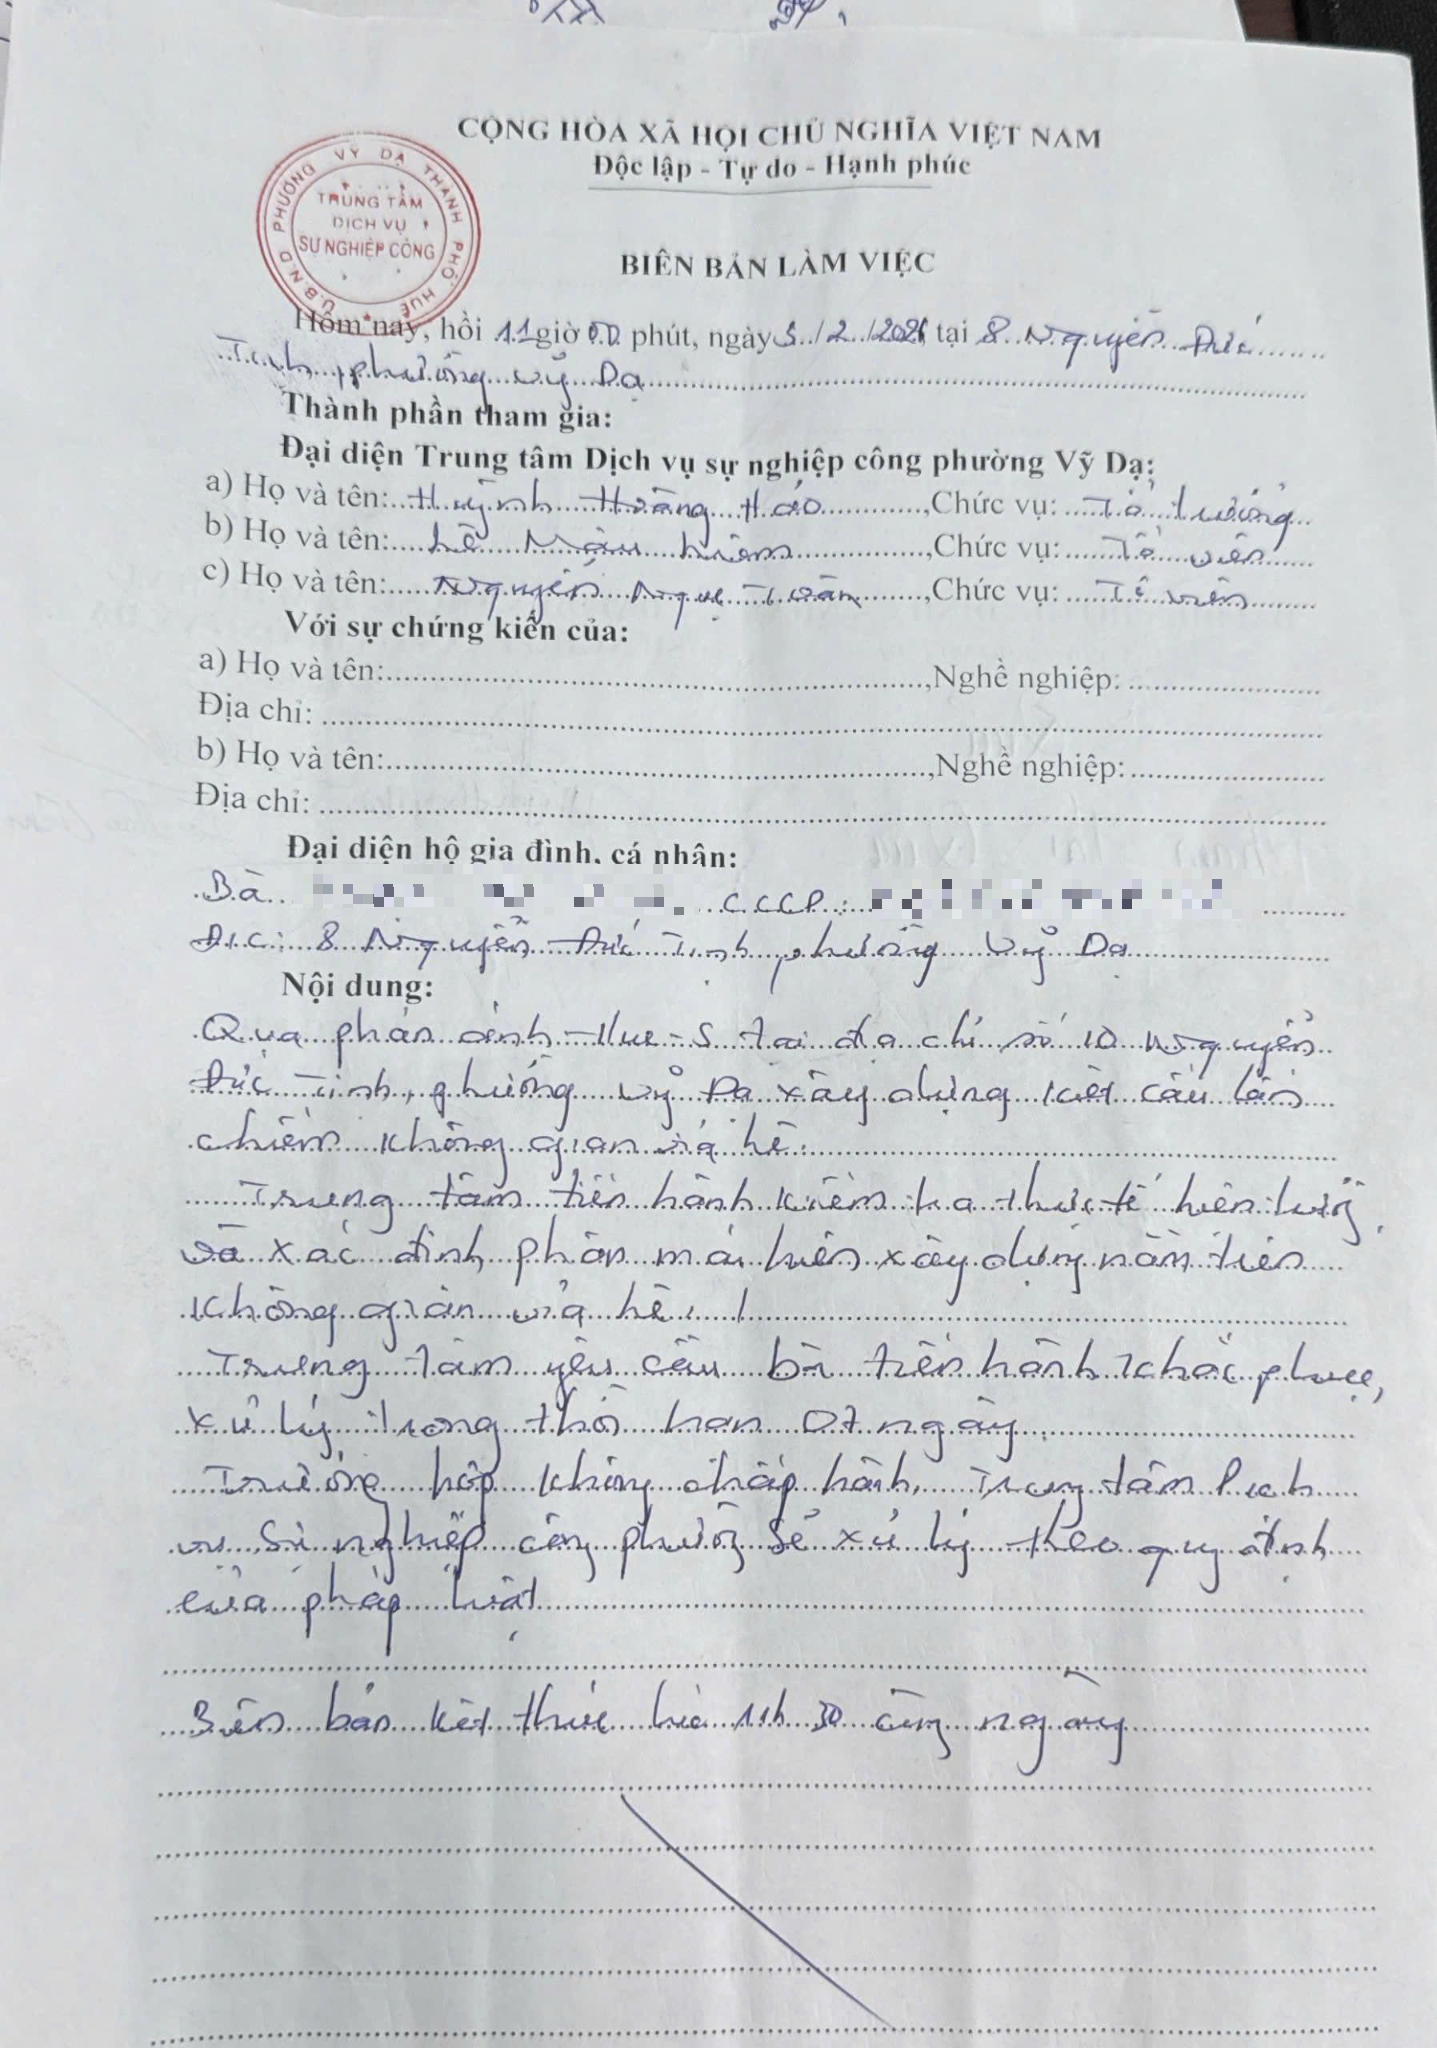 CỘNG HÒA XÃ HỘI CHỦ NGHĨA VIỆT NAM
Độc lập - Tự do - Hạnh phúc
U.B.N.D PHƯỜNG VỸ DẠ THÀNH PHỐ HUẾ
TRUNG TÂM
DỊCH VỤ
SỰ NGHIỆP CÔNG
BIÊN BẢN LÀM VIỆC
Hôm nay, hồi 11 giờ 00 phút, ngày 3/2/2026 tại 8 Nguyễn Đức
Tịnh, phường Vỹ Dạ
Thành phần tham gia:
Đại diện Trung tâm Dịch vụ sự nghiệp công phường Vỹ Dạ:
a) Họ và tên: Huỳnh Hoàng Hảo, Chức vụ: Tổ trưởng
b) Họ và tên: Lê Mậu, Chức vụ: Tổ viên
c) Họ và tên: Nguyễn Tuấn, Chức vụ: Tổ viên
Với sự chứng kiến của:
a) Họ và tên:, Nghề nghiệp:
Địa chỉ:
b) Họ và tên:, Nghề nghiệp:
Địa chỉ:
Đại diện hộ gia đình, cá nhân:
Bà CCCD:
Đ/C: 8 Nguyễn Đức Tịnh, phường Vỹ Dạ
Nội dung:
Qua phản ánh Hue-S tại địa chỉ số 10 Nguyễn
Đức Tịnh, phường Vỹ Dạ xây dựng kết cấu lấn
chiếm không gian vỉa hè.
Trung tâm tiến hành kiểm tra thực tế hiện trường
và xác định phần mái hiên xây dựng nằm trên
không gian vỉa hè.
Trung tâm yêu cầu bà tiến hành khắc phục,
xử lý trong thời hạn 07 ngày
Trường hợp không chấp hành, Trung tâm Dịch
vụ Sự nghiệp công phường sẽ xử lý theo quy định
của pháp luật
Biên bản kết thúc lúc 11h 30 cùng ngày